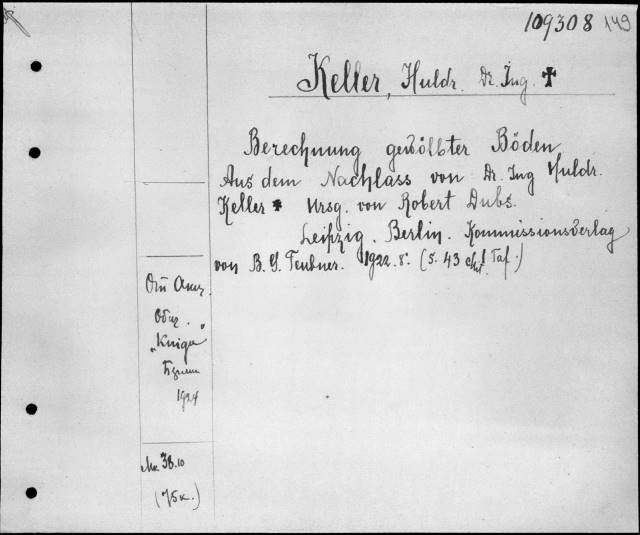 109308 149
Keller, Huldr. Dr. Ing. ✝
Berechnung gewölbter Böden
Aus dem Nachlass von Dr. Ing Huldr.
Keller ✝ Hrsg. von Robert Dubs.
Leipzig. Berlin. Kommissionsverlag
von B. G. Teubner. 1922. 8°. (5. 43 1 Taf.)
От Акц.
Общ.
„Книга"
1924
38.10
(75к.)